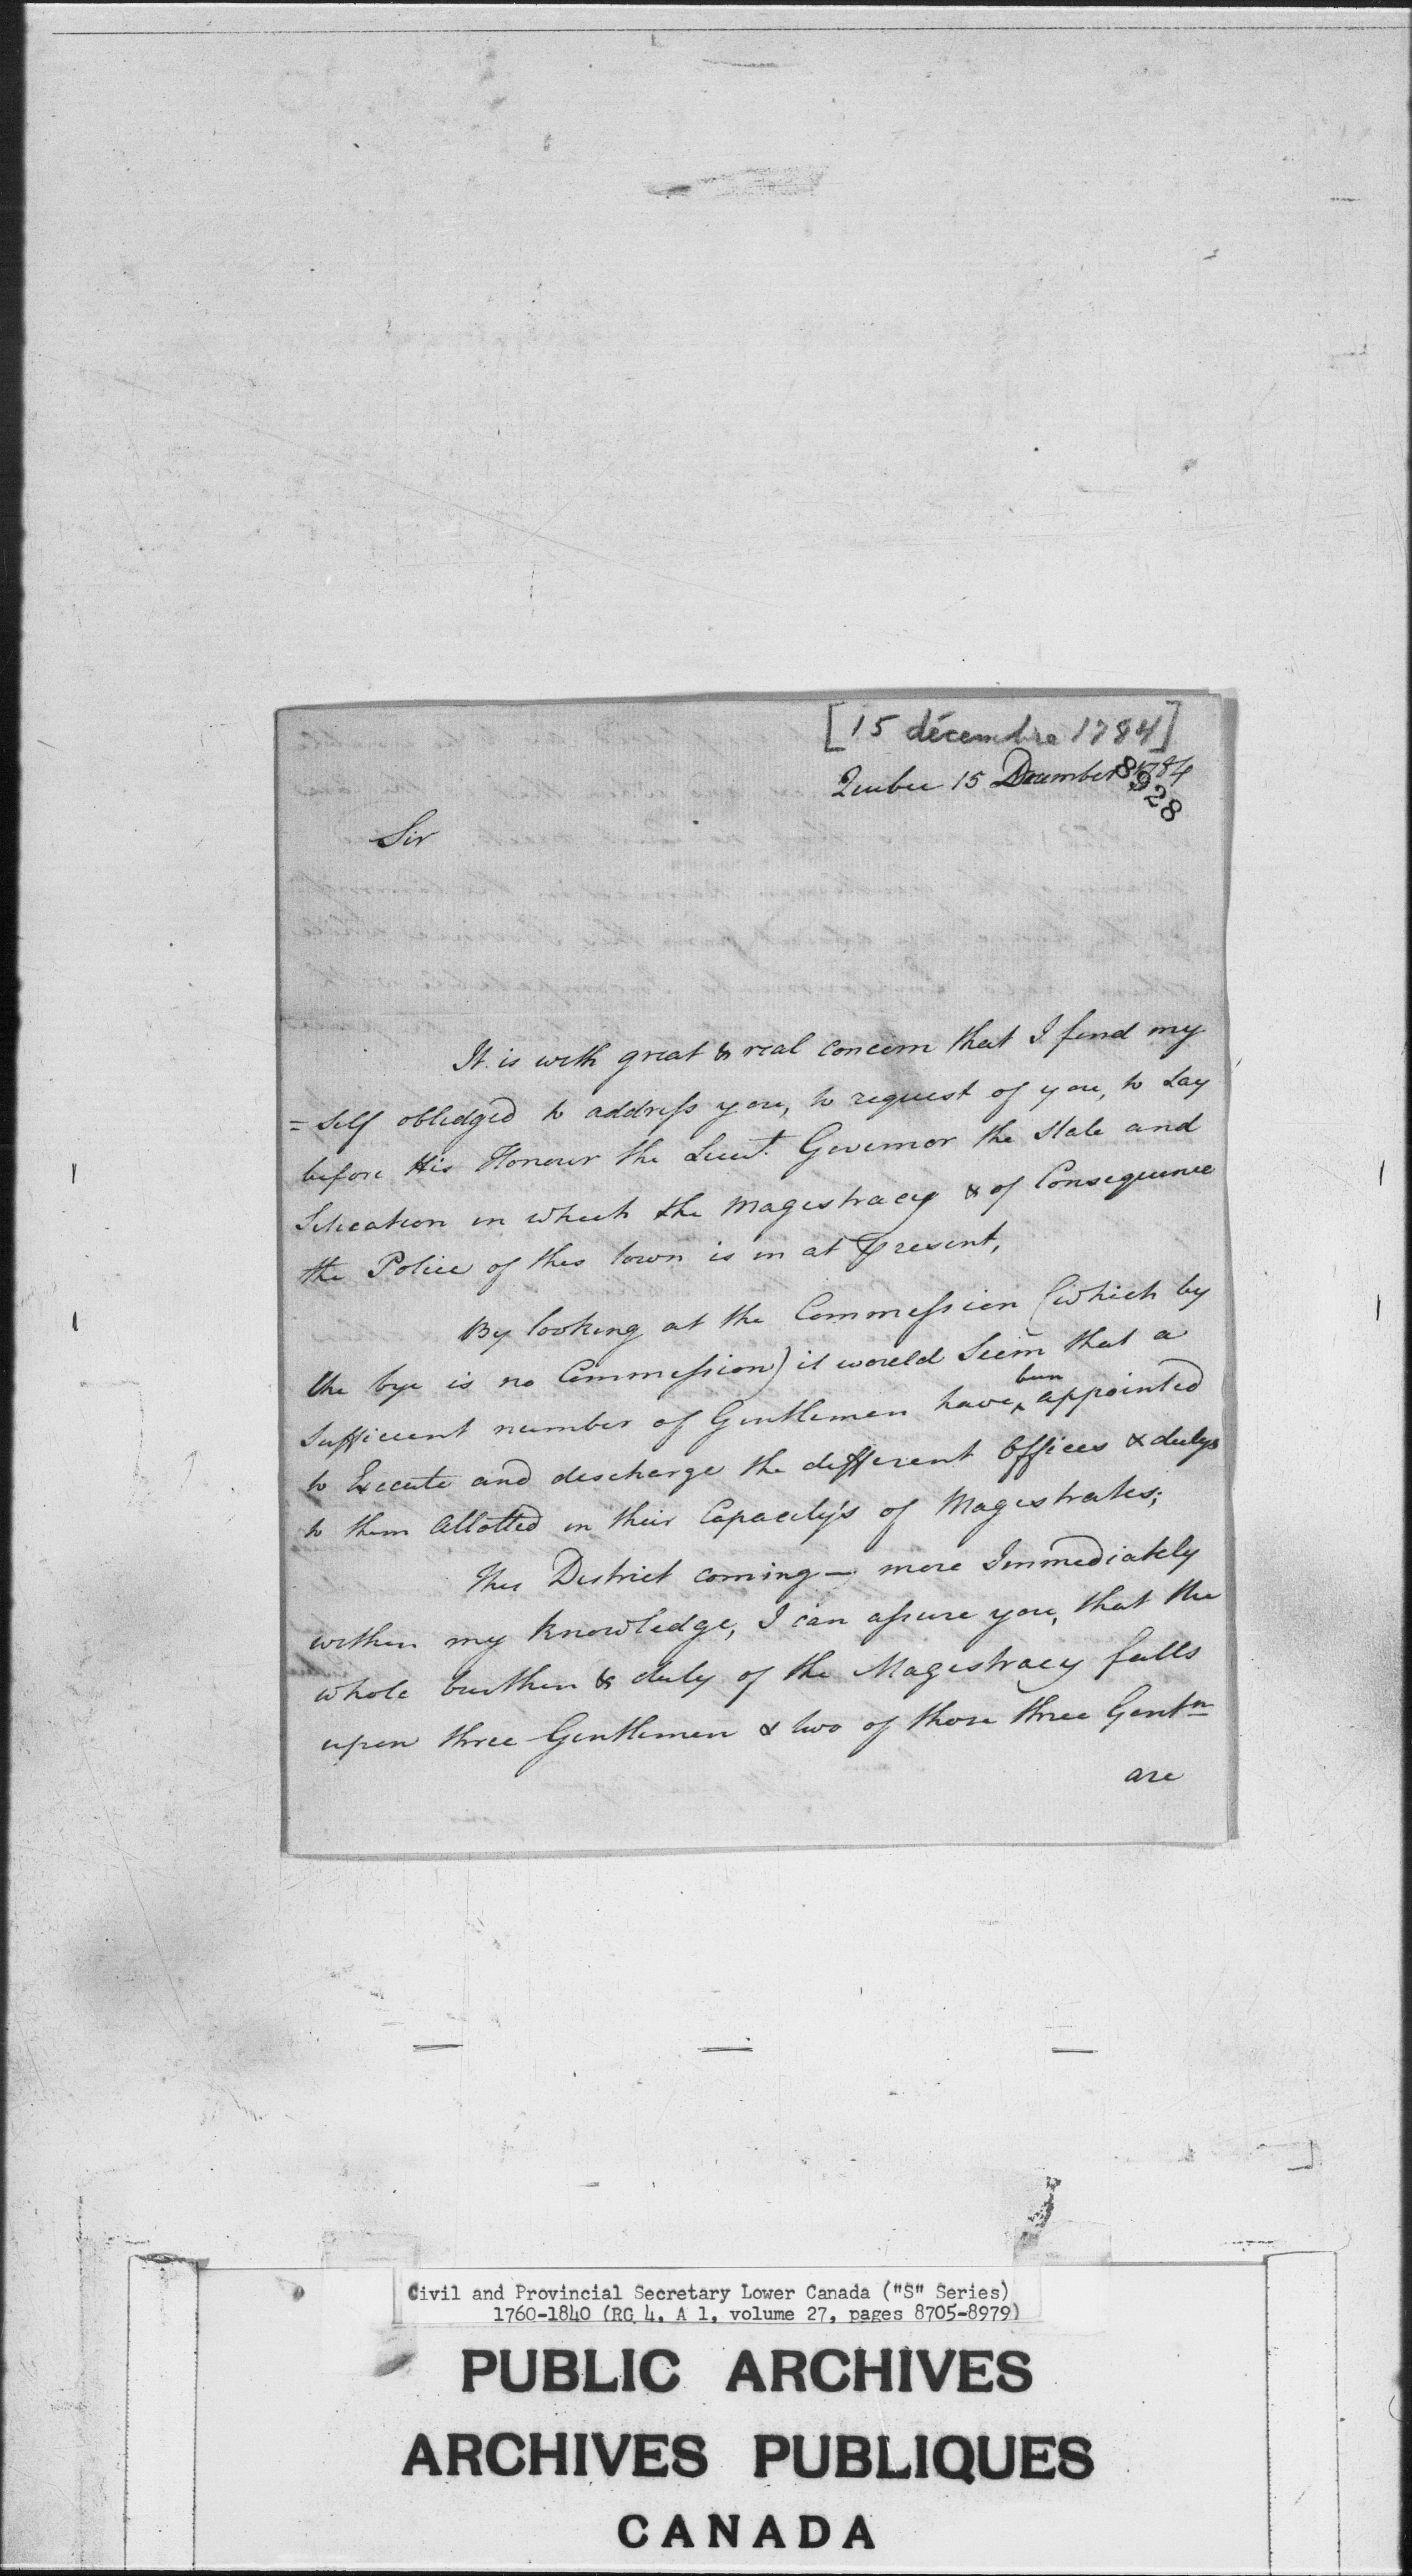 [15 décembre 1784]
Quebec 15 December 1784
8928
Sir
It is with great & real concern that I find my
=self obledged to address you, to request of you, to Lay
before His Honour the Lieut. Governor the State and
Situation in which the Magistracy & of Consequence
the Police of this town is in at Present,
By looking at the Commission (which by
the bye is no Commission) it would Seem that a
been
Sufficient number of Gentlemen have ‸ appointed
to Execute and discharge the different Offices & dutys
to them Allotted in their Capacity's of Magistrates;
This District coming — more Immediately
within my Knowledge, I can assure you, that the
whole burthen & duty of the Magistracy falls
upon three Gentlemen & two of those three Gentn
are
Civil and Provincial Secretary Lower Canada ("S" Series)
1760-1840 (RG 4, A 1, volume 27, pages 8705-8979)
PUBLIC ARCHIVES
ARCHIVES PUBLIQUES
CANADA